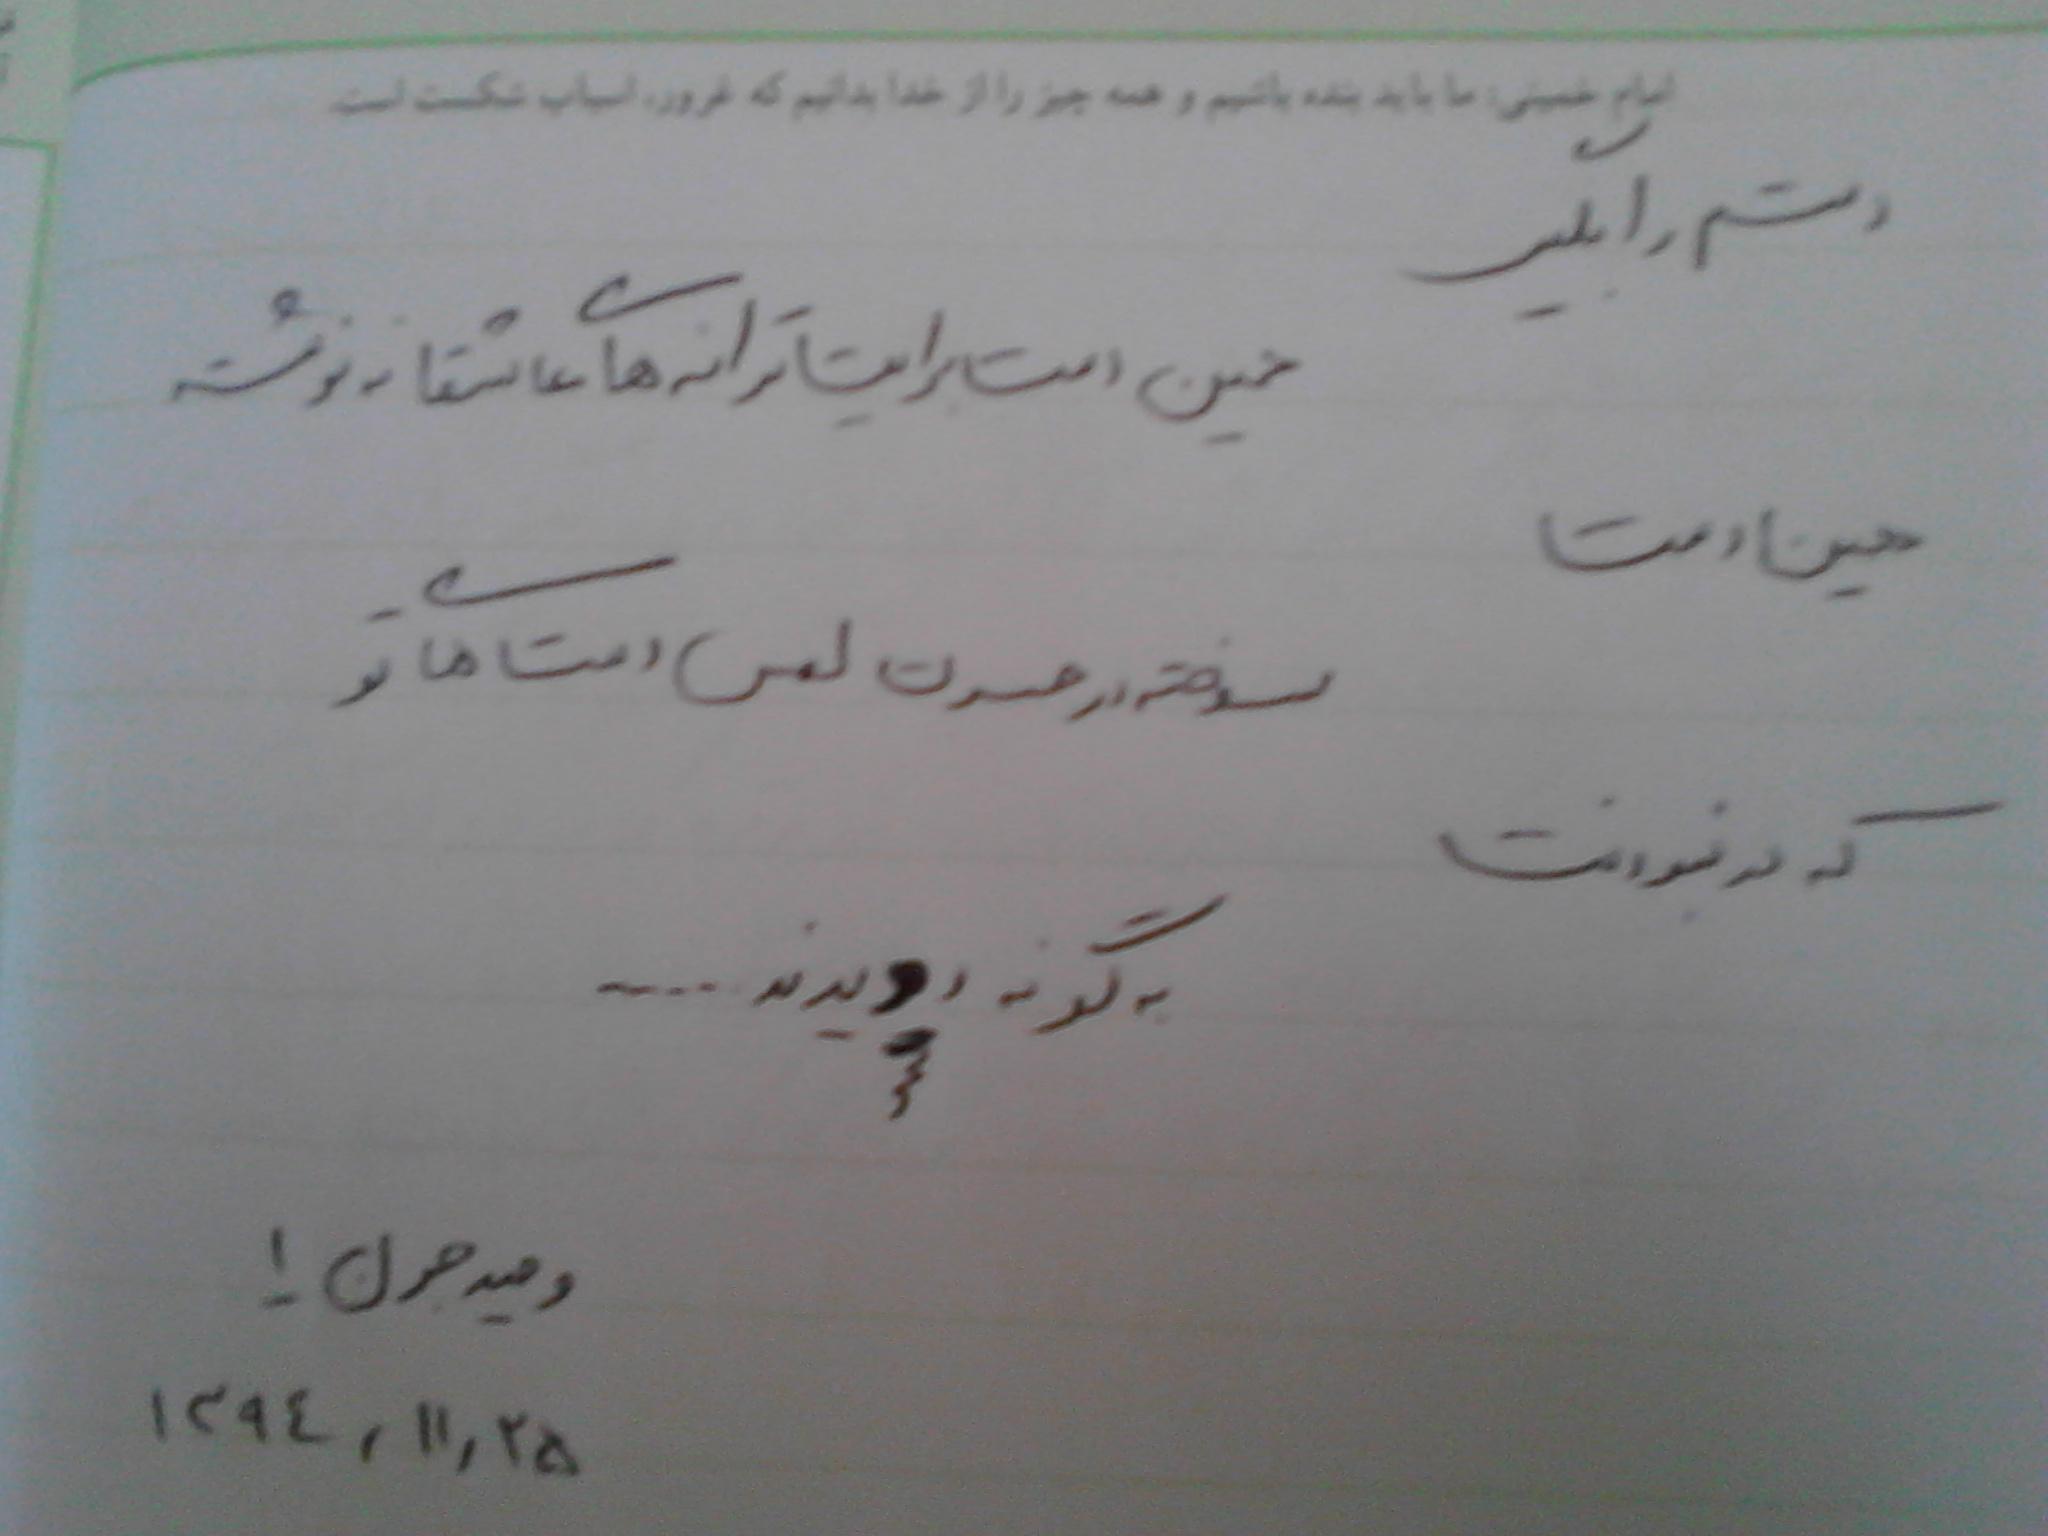 امام خمینی: ما باید بنده باشیم و همه چیز را از خدا بدانیم که غرور، اسباب شکست است
دستم را بگیر
همین دست برایت ترانه های عاشقانه نوشته
همین دست
سوخته در حسرت لمس دست های تو
که در نبودنت
به گونه دویدند....
وحید جرل !
۱۳۹٤,۱۱,۲۵